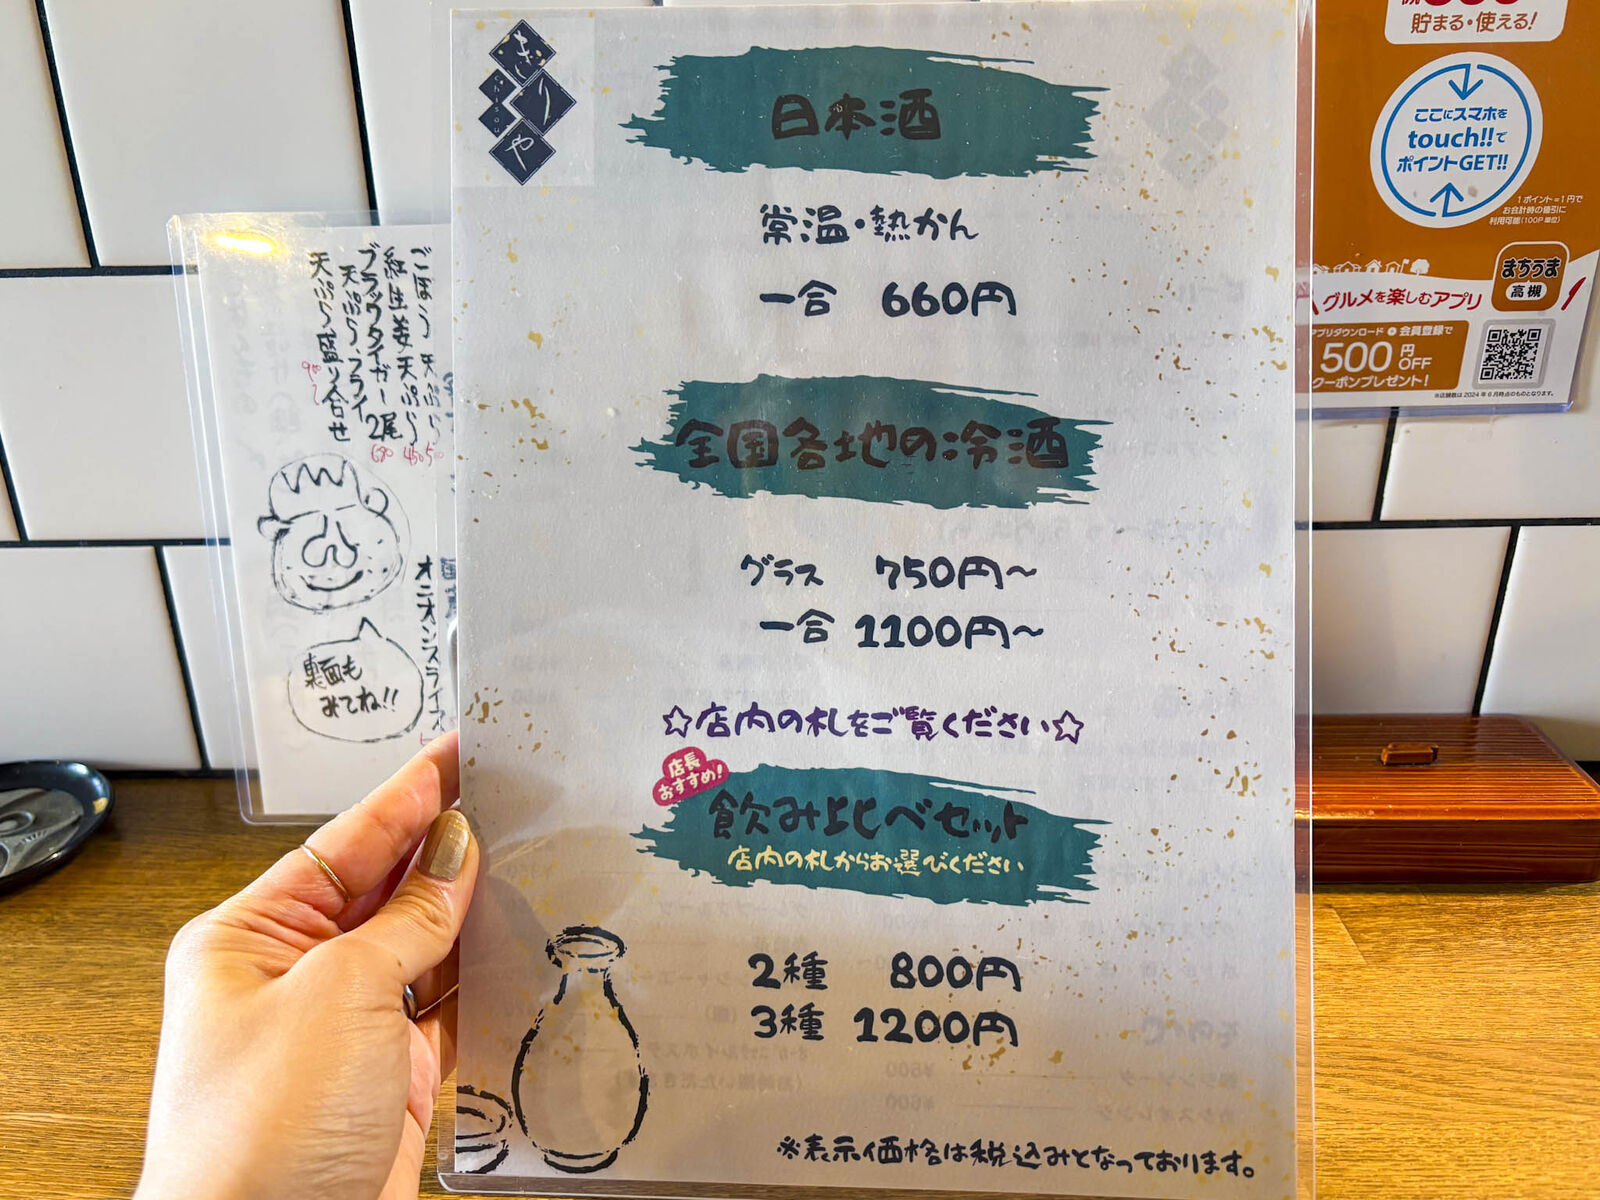 きりや
chisou
日本酒
常温・熱かん
一合 660円
全国各地の冷酒
グラス 750円～
一合 1100円～
☆店内の札をご覧ください☆
店長
おすすめ!
飲み比べセット
店内の札からお選びください
2種 800円
3種 1200円
※表示価格は税込みとなっております。
ごぼう 天ぷら
紅生姜天ぷら 450
ブラックタイガー 2尾 680
天ぷら フライ
天ぷら盛り合せ
オニオンスライス
裏面も
みてね!!
貯まる・使える!
ここにスマホを
touch!!で
ポイントGET!!
1ポイント=1円で
お会計時の値引に
利用可能(100P単位)
まちうま
高槻
グルメを楽しむアプリ
アプリダウンロード 会員登録で
500円OFF
クーポンプレゼント!
※店舗数は2024年6月時点のものとなります。